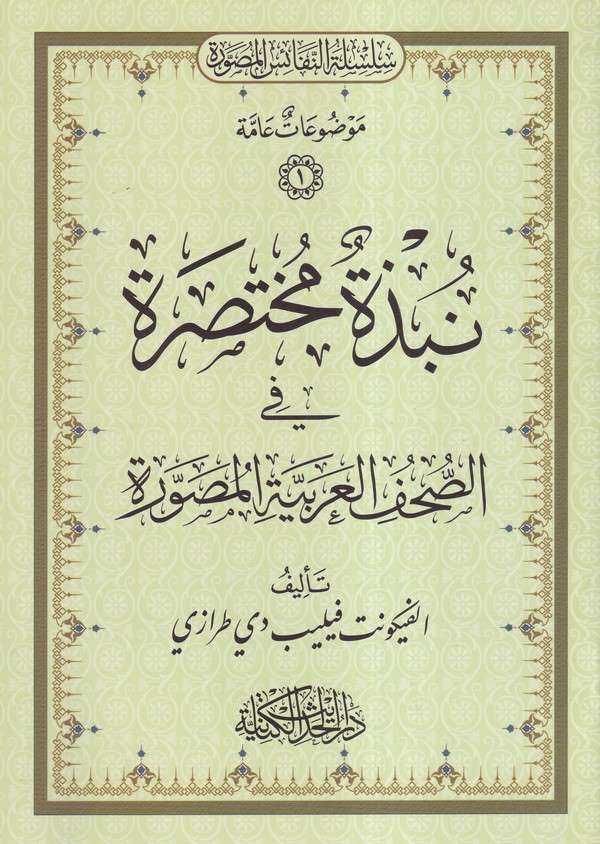 سِلْسِلَةُ النَّفَائِسِ المُصَوَّرَة
مَوْضُوعَاتٌ عَامَّة
١
نُبْذَةٌ مُخْتَصَرَة
فِي
الصُّحُفِ العَرَبِيَّةِ المُصَوَّرَة
تَأليفُ
الفيكونت فيليب دي طرازي
دار الحديث الكتانية